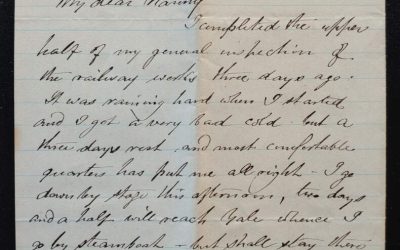 My dear Nanny
I completed the upper
half of my general inspection of
the railway works three days ago.
It was raining hard when I started
and I got a very bad cold but a
three days rest and most comfortable
quarters has put me all right - I go
down by stage this afternoon, two days
and a half will reach Yale whence I
go by steamboat - but shall stay there